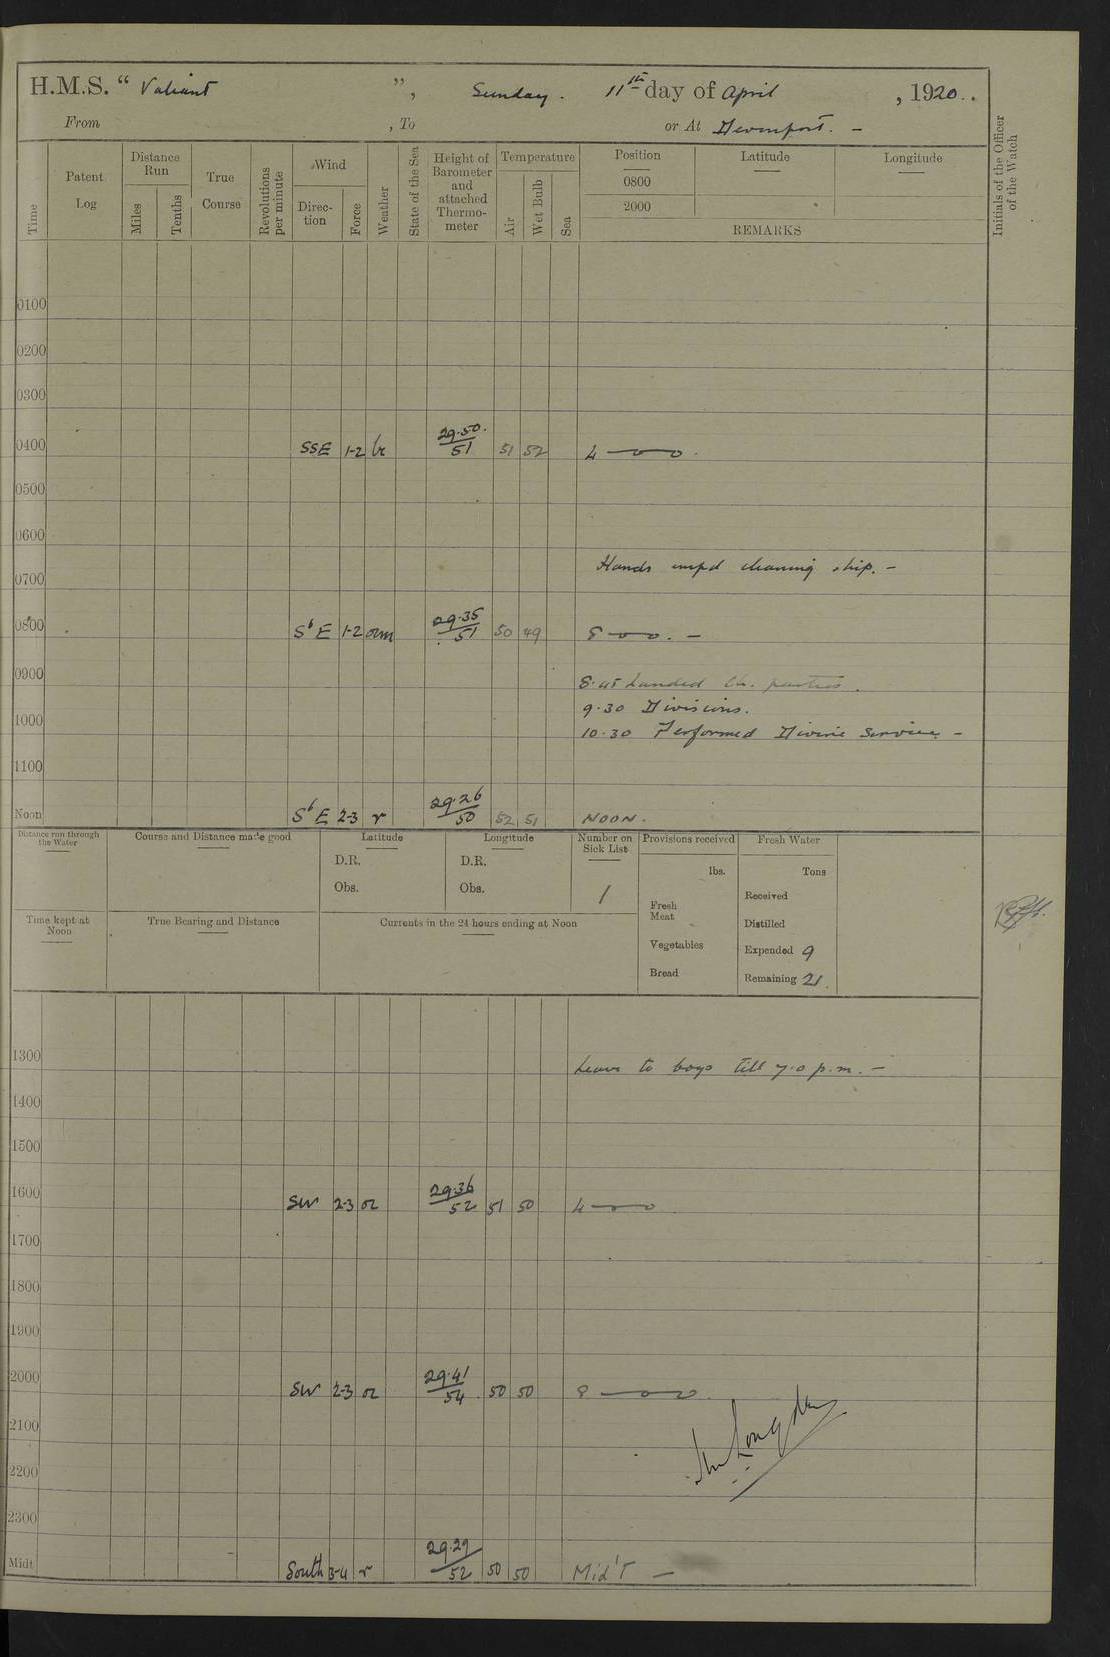 H.M.S. “ Valiant ”, Sunday. 11th day of April , 1920..
From , To or At Devonport. –
Time
Patent Log
Distance Run
Miles
Tenths
True Course
Revolutions per minute
Wind
Direc- tion
Force
Weather
State of the Sea
Height of Barometer and attached Thermo- meter
Temperature
Air
Wet Bulb
Sea
Position
0800
2000
Latitude
Longitude
REMARKS
Initials of the Officer of the Watch
0100
0200
0300
0400 SSE 1-2 bc 29.50. 51 51 52 4
0500
0600
Hands empd cleaning ship. –
0700
0800 SbE 1-2 orm 29.35 51 50 49 8
0900 8.45 Landed Ch. parties.
9.30 Divisions.
1000 10.30 Performed Divine Service –
1100
Noon SbE 2-3 r 29.26 50 52 51 NOON.
Distance run through the Water
Course and Distance made good
Latitude
D.R.
Obs.
Longitude
D.R.
Obs.
Number on Sick List
1
Provisions received
lbs.
Fresh Meat
Vegetables
Bread
Fresh Water
Tons
Received
Distilled
Expended 9
Remaining 21.
Time kept at Noon
True Bearing and Distance
Currents in the 24 hours ending at Noon
1300 Leave to boys till 7.0 p.m. –
1400
1500
1600 SW 2-3 or 29.36 52 51 50 4
1700
1800
1900
2000 SW 2-3 or 29.41 54 50 50 8
2100
2200
2300
Midt South 3-4 r 29.29 52 50 50 Mid'T –